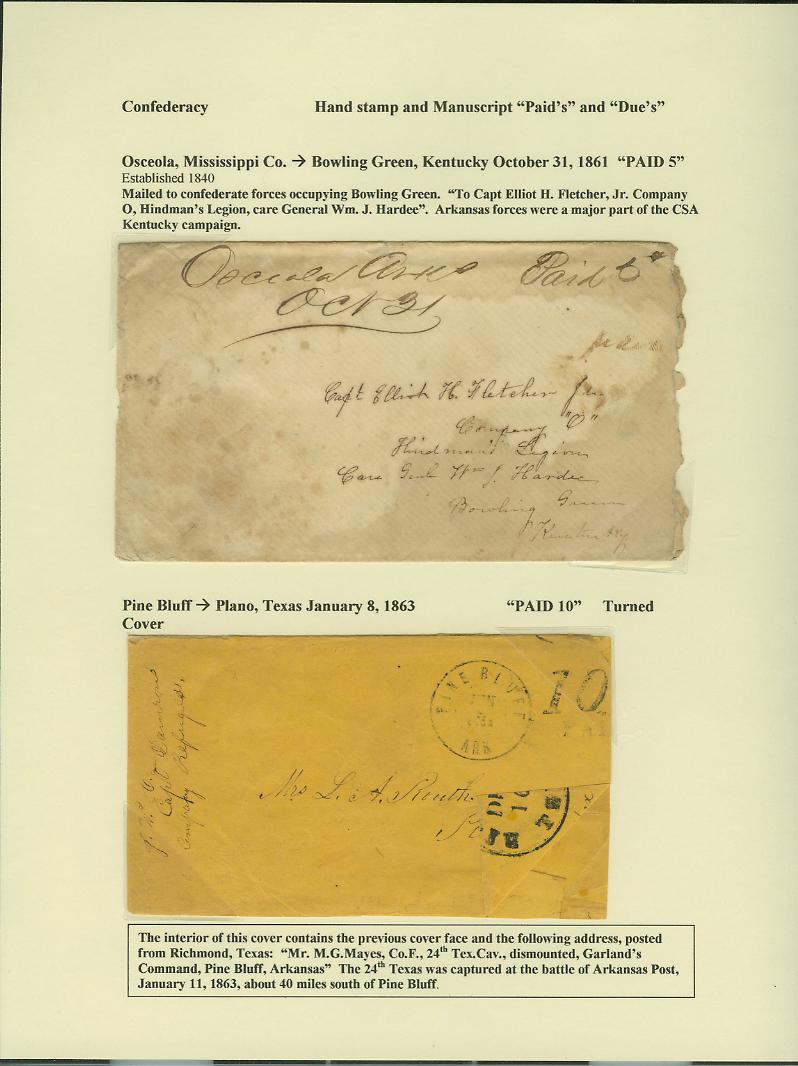 Confederacy Hand stamp and Manuscript “Paid's” and “Due's”
Osceola, Mississippi Co. → Bowling Green, Kentucky October 31, 1861 “PAID 5”
Established 1840
Mailed to confederate forces occupying Bowling Green. “To Capt Elliot H. Fletcher, Jr. Company
O, Hindman's Legion, care General Wm. J. Hardee”. Arkansas forces were a major part of the CSA
Kentucky campaign.
Osceola Arks Paid 5
Oct 31
Capt Elliot H. Fletcher Jr.
Company "O"
Hindman's Legion
Care Genl Wm J. Hardee
Bowling Green
Kentucky
Pine Bluff → Plano, Texas January 8, 1863 “PAID 10” Turned
Cover
Capt Damron
Company Refugees.
PINE BLUFF
ARK
10
Mrs L. A. Routh
The interior of this cover contains the previous cover face and the following address, posted
from Richmond, Texas: “Mr. M.G.Mayes, Co.F., 24th Tex.Cav., dismounted, Garland's
Command, Pine Bluff, Arkansas” The 24th Texas was captured at the battle of Arkansas Post,
January 11, 1863, about 40 miles south of Pine Bluff.